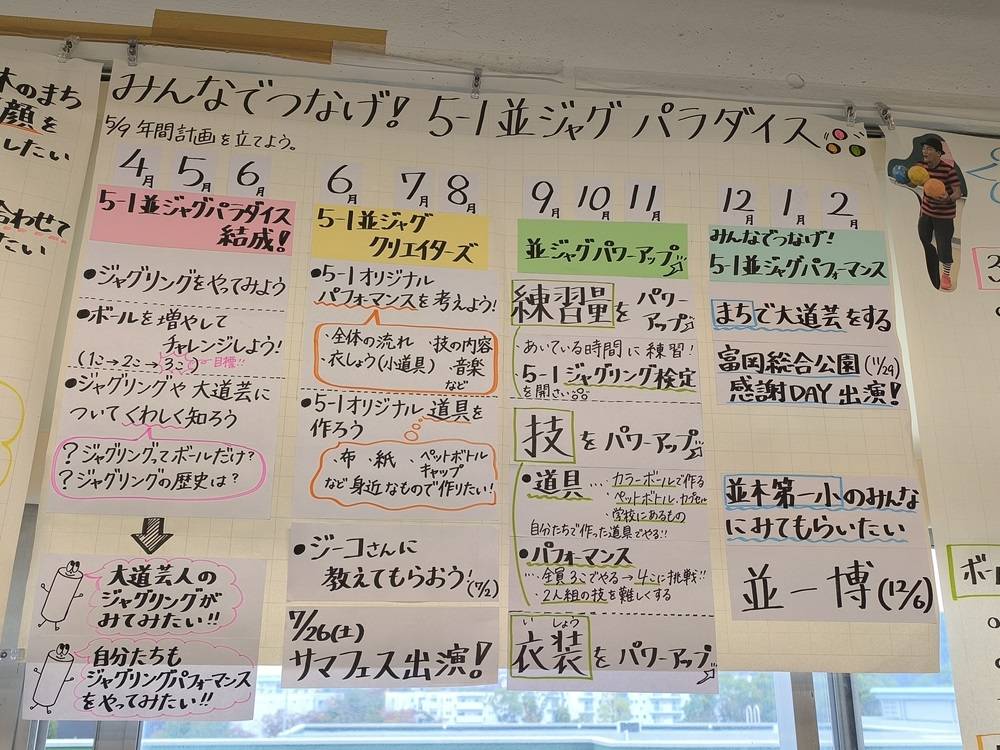 木のまち
顔を
したい
合わせて
たい
みんなでつなげ! 5-1並ジャグ パラダイス
5/9 年間計画を立てよう。
4月 5月 6月
5-1並ジャグパラダイス
結成!
●ジャグリングをやってみよう
●ボールを増やして
チャレンジしよう!
(1こ→2こ→3こ) 目標!!
●ジャグリングや大道芸に
ついてくわしく知ろう
?ジャグリングってボールだけ?
?ジャグリングの歴史は?
大道芸人の
ジャグリングが
みてみたい!!
自分たちも
ジャグリングパフォーマンス
をやってみたい!!
6月 7月 8月
5-1並ジャグ
クリエイターズ
●5-1オリジナル
パフォーマンスを考えよう!
・全体の流れ ・技の内容
・衣しょう(小道具) ・音楽
など
●5-1オリジナル 道具を
作ろう
・布 ・紙 ・ペットボトル
キャップ
など 身近なもので作りたい!
●ジーコさんに
教えてもらおう!(7/2)
7/26(土)
サマフェス出演!
9月 10月 11月
並ジャグパワーアップ
練習量を パワー
アップ
・あいている時間に練習!
・5-1 ジャグリング検定
を開さい
技をパワーアップ
●道具…・カラーボールで作る
・ペットボトル・カプセル
・学校にあるもの
自分たちで作った道具でやる!!
●パフォーマンス
…・全員3こでやる→4こに挑戦!!
・2人組の技を難しくする
いしょう
衣装をパワーアップ
12月 1月 2月
みんなでつなげ!
5-1並ジャグパフォーマンス
まちで大道芸をする
富岡総合公園(11/29)
感謝DAY 出演!
並木第一小のみんな
にみてもらいたい
並一博(12/6)
ボー